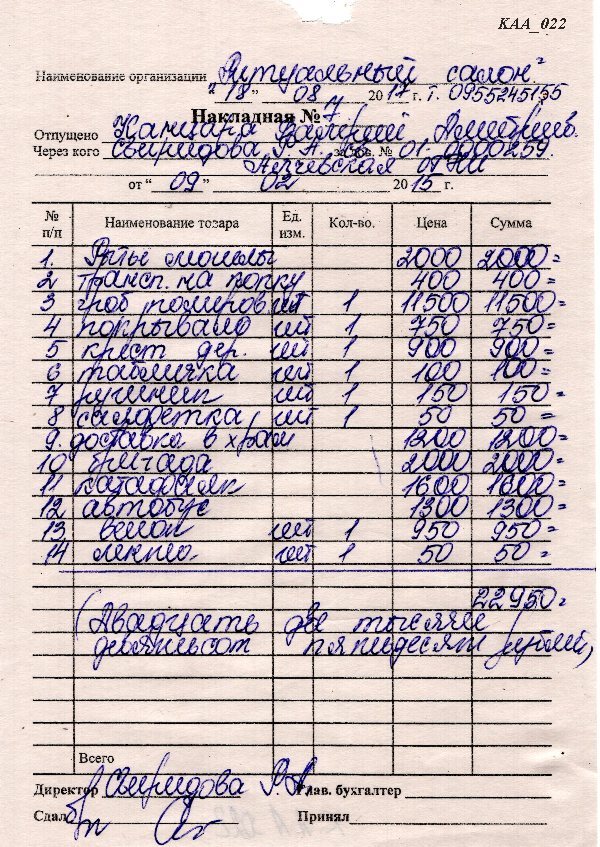 КАА_022
Наименование организации "Ритуальный салон"
"18" 08 2017 г. т. 0955245155
Накладная № 7
Отпущено Канцара Валерий Дмитриев.
Через кого Свиридова Р. А. № 01-0000259
Алчевская
от "09" 02 2015 г.
№ п/п Наименование товара Ед. изм. Кол-во. Цена Сумма
1. Рытье могилы 2000 2000=
2 трансп. на копку 400 400=
3 гроб полиров шт 1 11500 11500=
4 покрывало шт 1 750 750=
5 крест дер. шт 1 900 900=
6 табличка шт 1 100 100=
7 рушник шт 1 150 150=
8 салфетка шт 1 50 50=
9. доставка в храм 1200 1200=
10 бригада 2000 2000=
11 катафалк 1600 1600=
12 автобус 1300 1300=
13 венок шт 1 950 950=
14 лента шт 1 50 50=
22950=
(Двадцать две тысячи
девятьсот пятьдесят рублей)
Всего
Директор Свиридова Р.А. Глав. бухгалтер
Сдал Принял